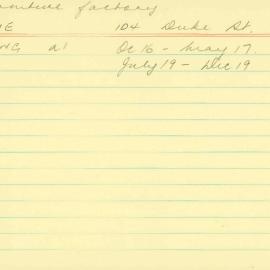 factory
104 Duke St.
a1 Oc 16 - May 17.
July 19 - Dec 19